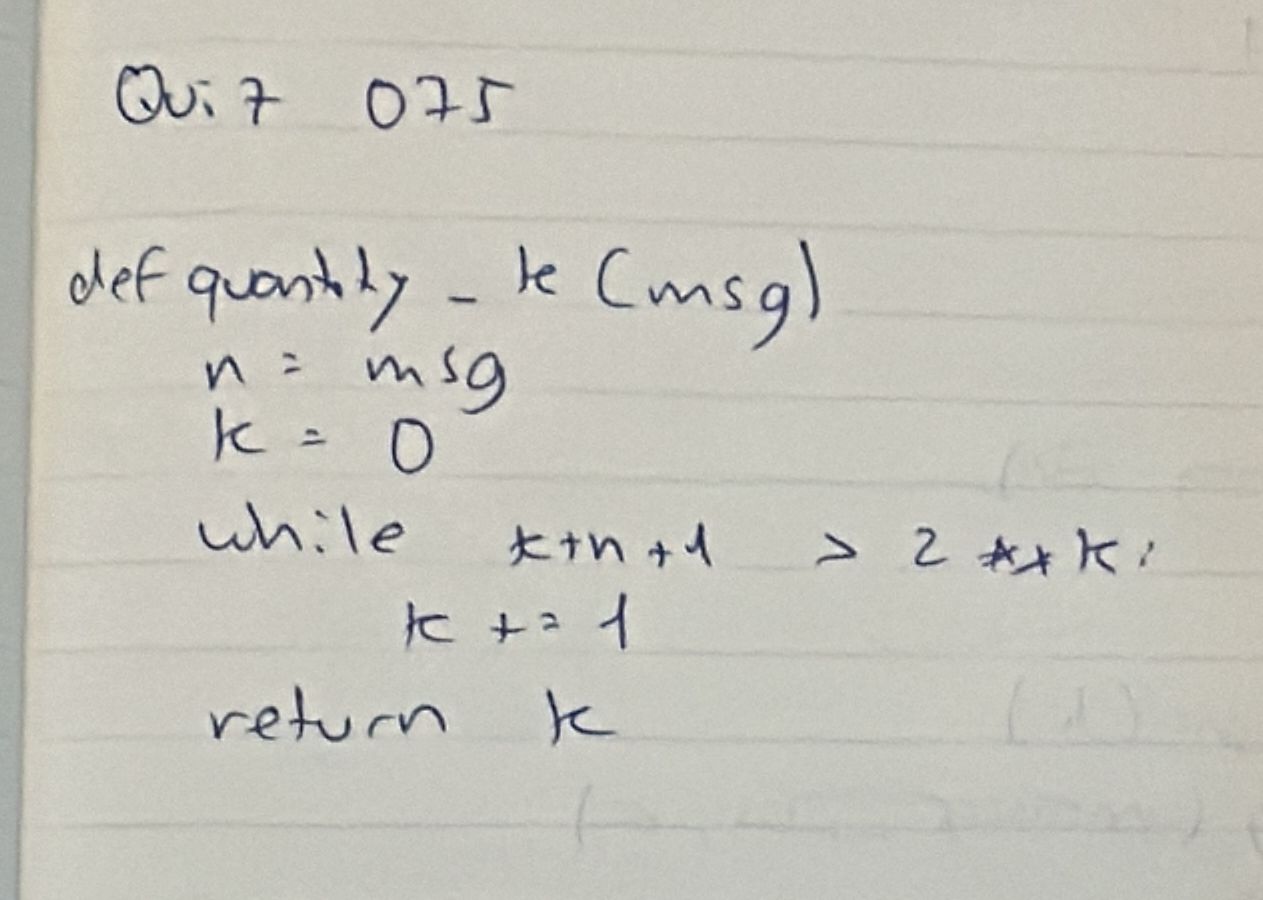 Quiz 075
def quantity_k (msg)
n = msg
k = 0
while k+n+1 > 2 ** k:
k += 1
return k